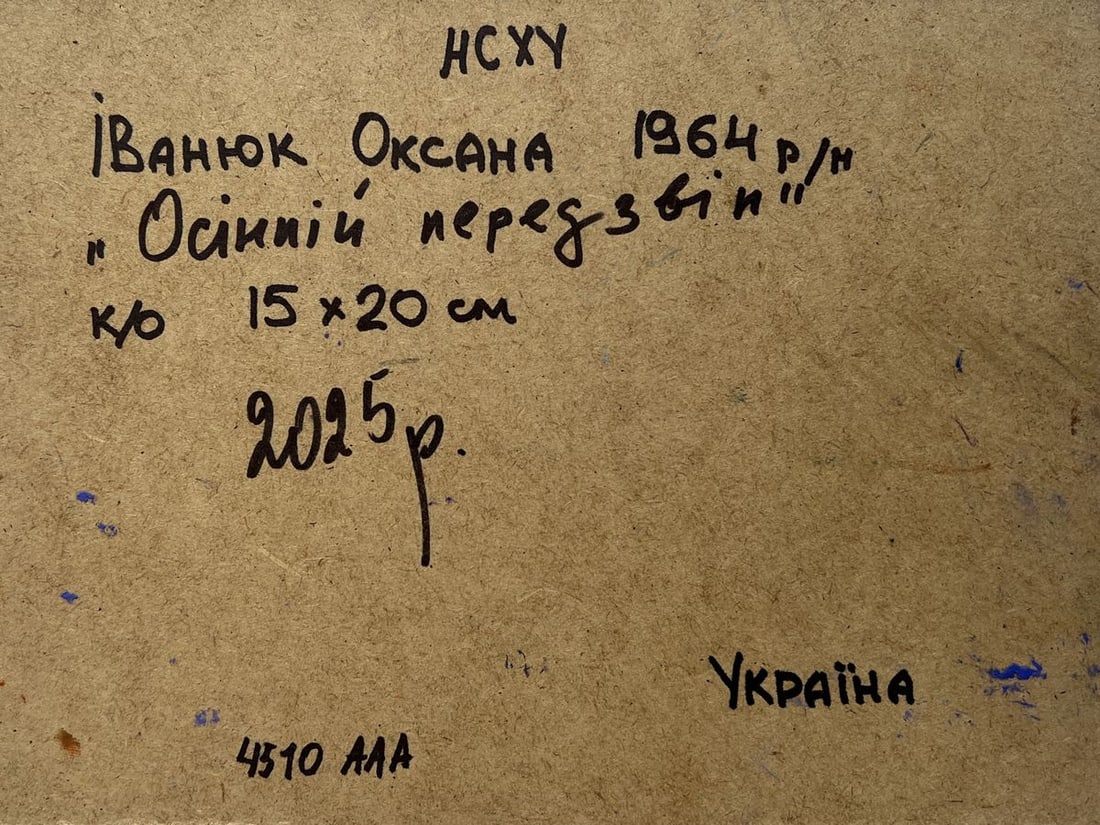 НСХУ
Іванюк Оксана 1964 р/н
„Осінній передзвін"
к/о 15 x 20 см
2025 р.
Україна
4510 ААА